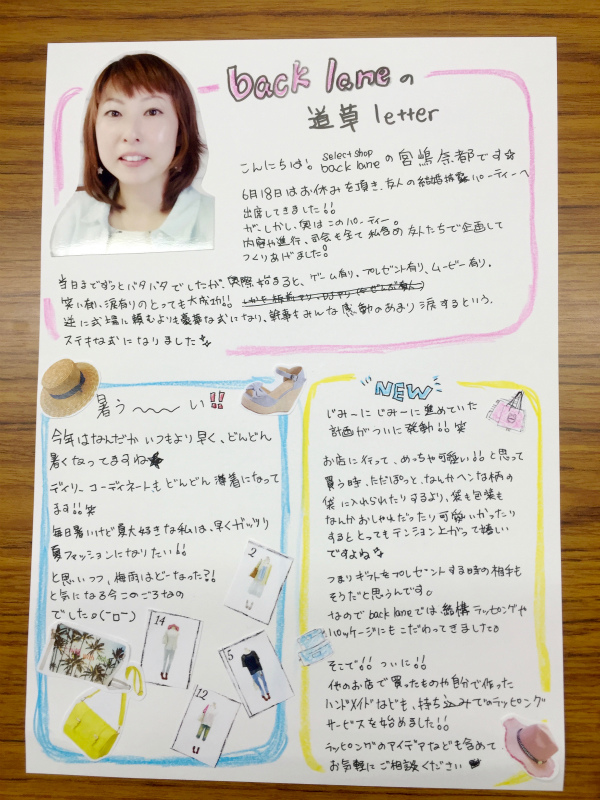 back laneの
道草 letter
こんにちは! select shop back laneの宮嶋奈都です☆
6月18日はお休みを頂き、友人の結婚披露パーティーへ
出席してきました!!
が、しかし、実はこのパーティー。
内容や進行、司会も全て私含め友人たちで企画して
つくりあげました!
当日までずっとバタバタでしたが、実際始まると、ゲーム有り、プレゼント有り、ムービー有り。
笑い有り、涙有りのとっても大成功!!
逆に式場に頼むよりも豪華な式になり、幹事もみんな感動のあまり涙するという、
ステキな式になりました☆
暑う〜〜い!!
今年はなんだかいつもより早く、どんどん
暑くなってますね★
デイリーコーディネートもどんどん薄着になって
ます!!笑
毎日暑いけど夏大好きな私は、早くガッツリ
夏ファッションになりたい!!
と思いつつ、梅雨はどーなった?!
と気になる今このごろなの
でした。(ー□ー)
2
14
5
12
NEW
じみーにじみーに進めていた
計画がついに発動!!笑
お店に行って、めっちゃ可愛い!!と思って
買う時、ただぽっと、なんかヘンな柄の
袋に入れられたりするより、袋も包装も
なんかおしゃれだったり可愛いかったり
するととってもテンション上がって嬉しい
ですよね☆
つまりギフトをプレゼントする時の相手も
そうだと思うんです。
なのでback laneでは結構ラッピングや
パッケージにもこだわってきました。
そこで!!ついに!!
他のお店で買ったものや自分で作った
ハンドメイドなども、持ち込みでのラッピング
サービスを始めました!!
ラッピングのアイデアなども含めて
お気軽にご相談ください★